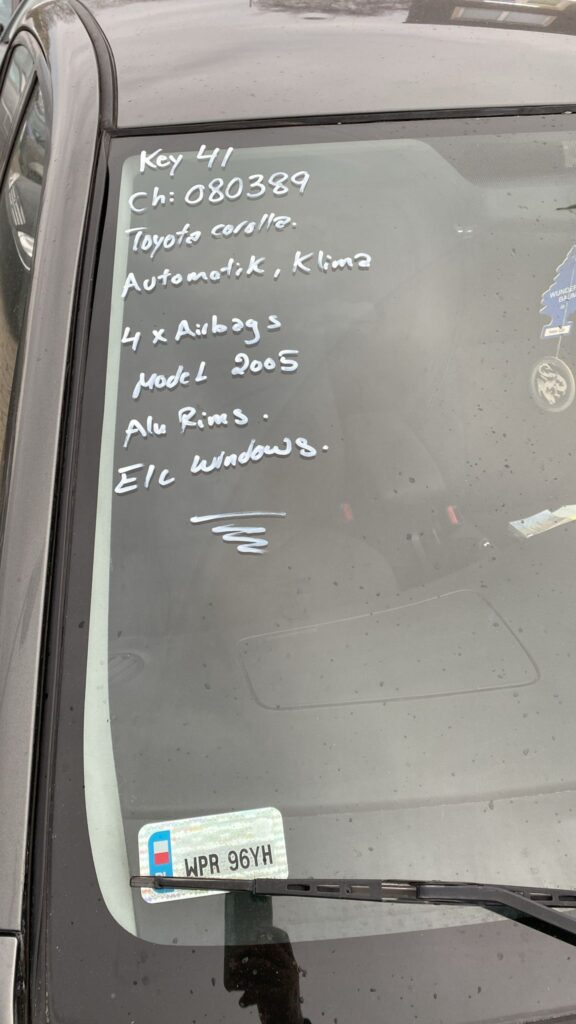 Key 41
Ch: 080389
Toyota corolla.
Automatik, Klima
4 x Airbags
Model 2005
Alu Rims.
E/c windows.
WUNDER
BAUM
PL
WPR 96YH